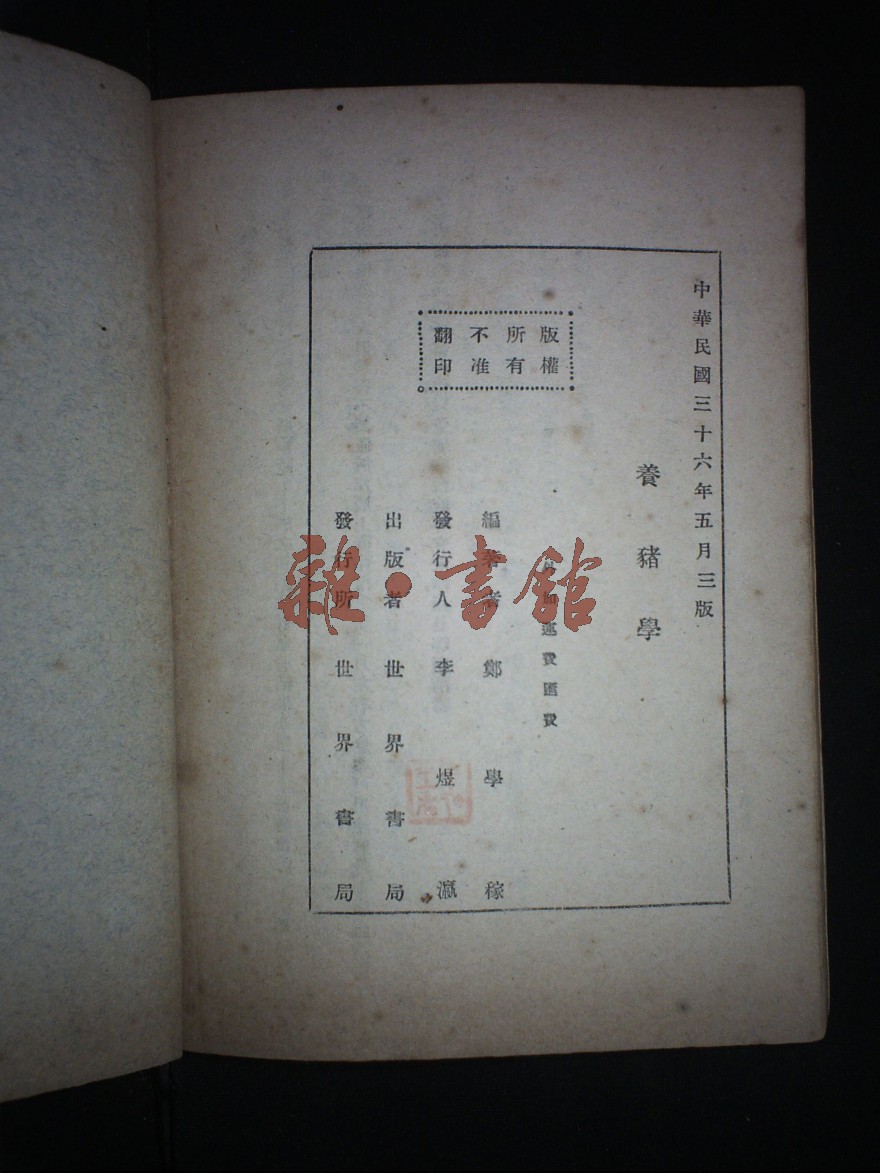 中華民國三十六年五月三版
養豬學
版權
所有
不准
翻印
加運費匯費
編著者 鄭學稼
發行人 李煜瀛
出版者 世界書局
發行所 世界書局
雜·書館